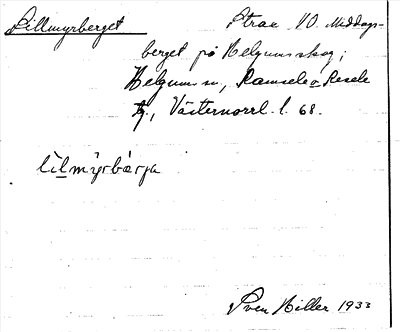 Lillmyrberget Strax NO. Middags-
berget på Helgums skog;
Helgum sn, Ramsele o Resele
tg., Västernorrl. l. 68.
lìlmy̆rbærja
Sven Hiller 1933